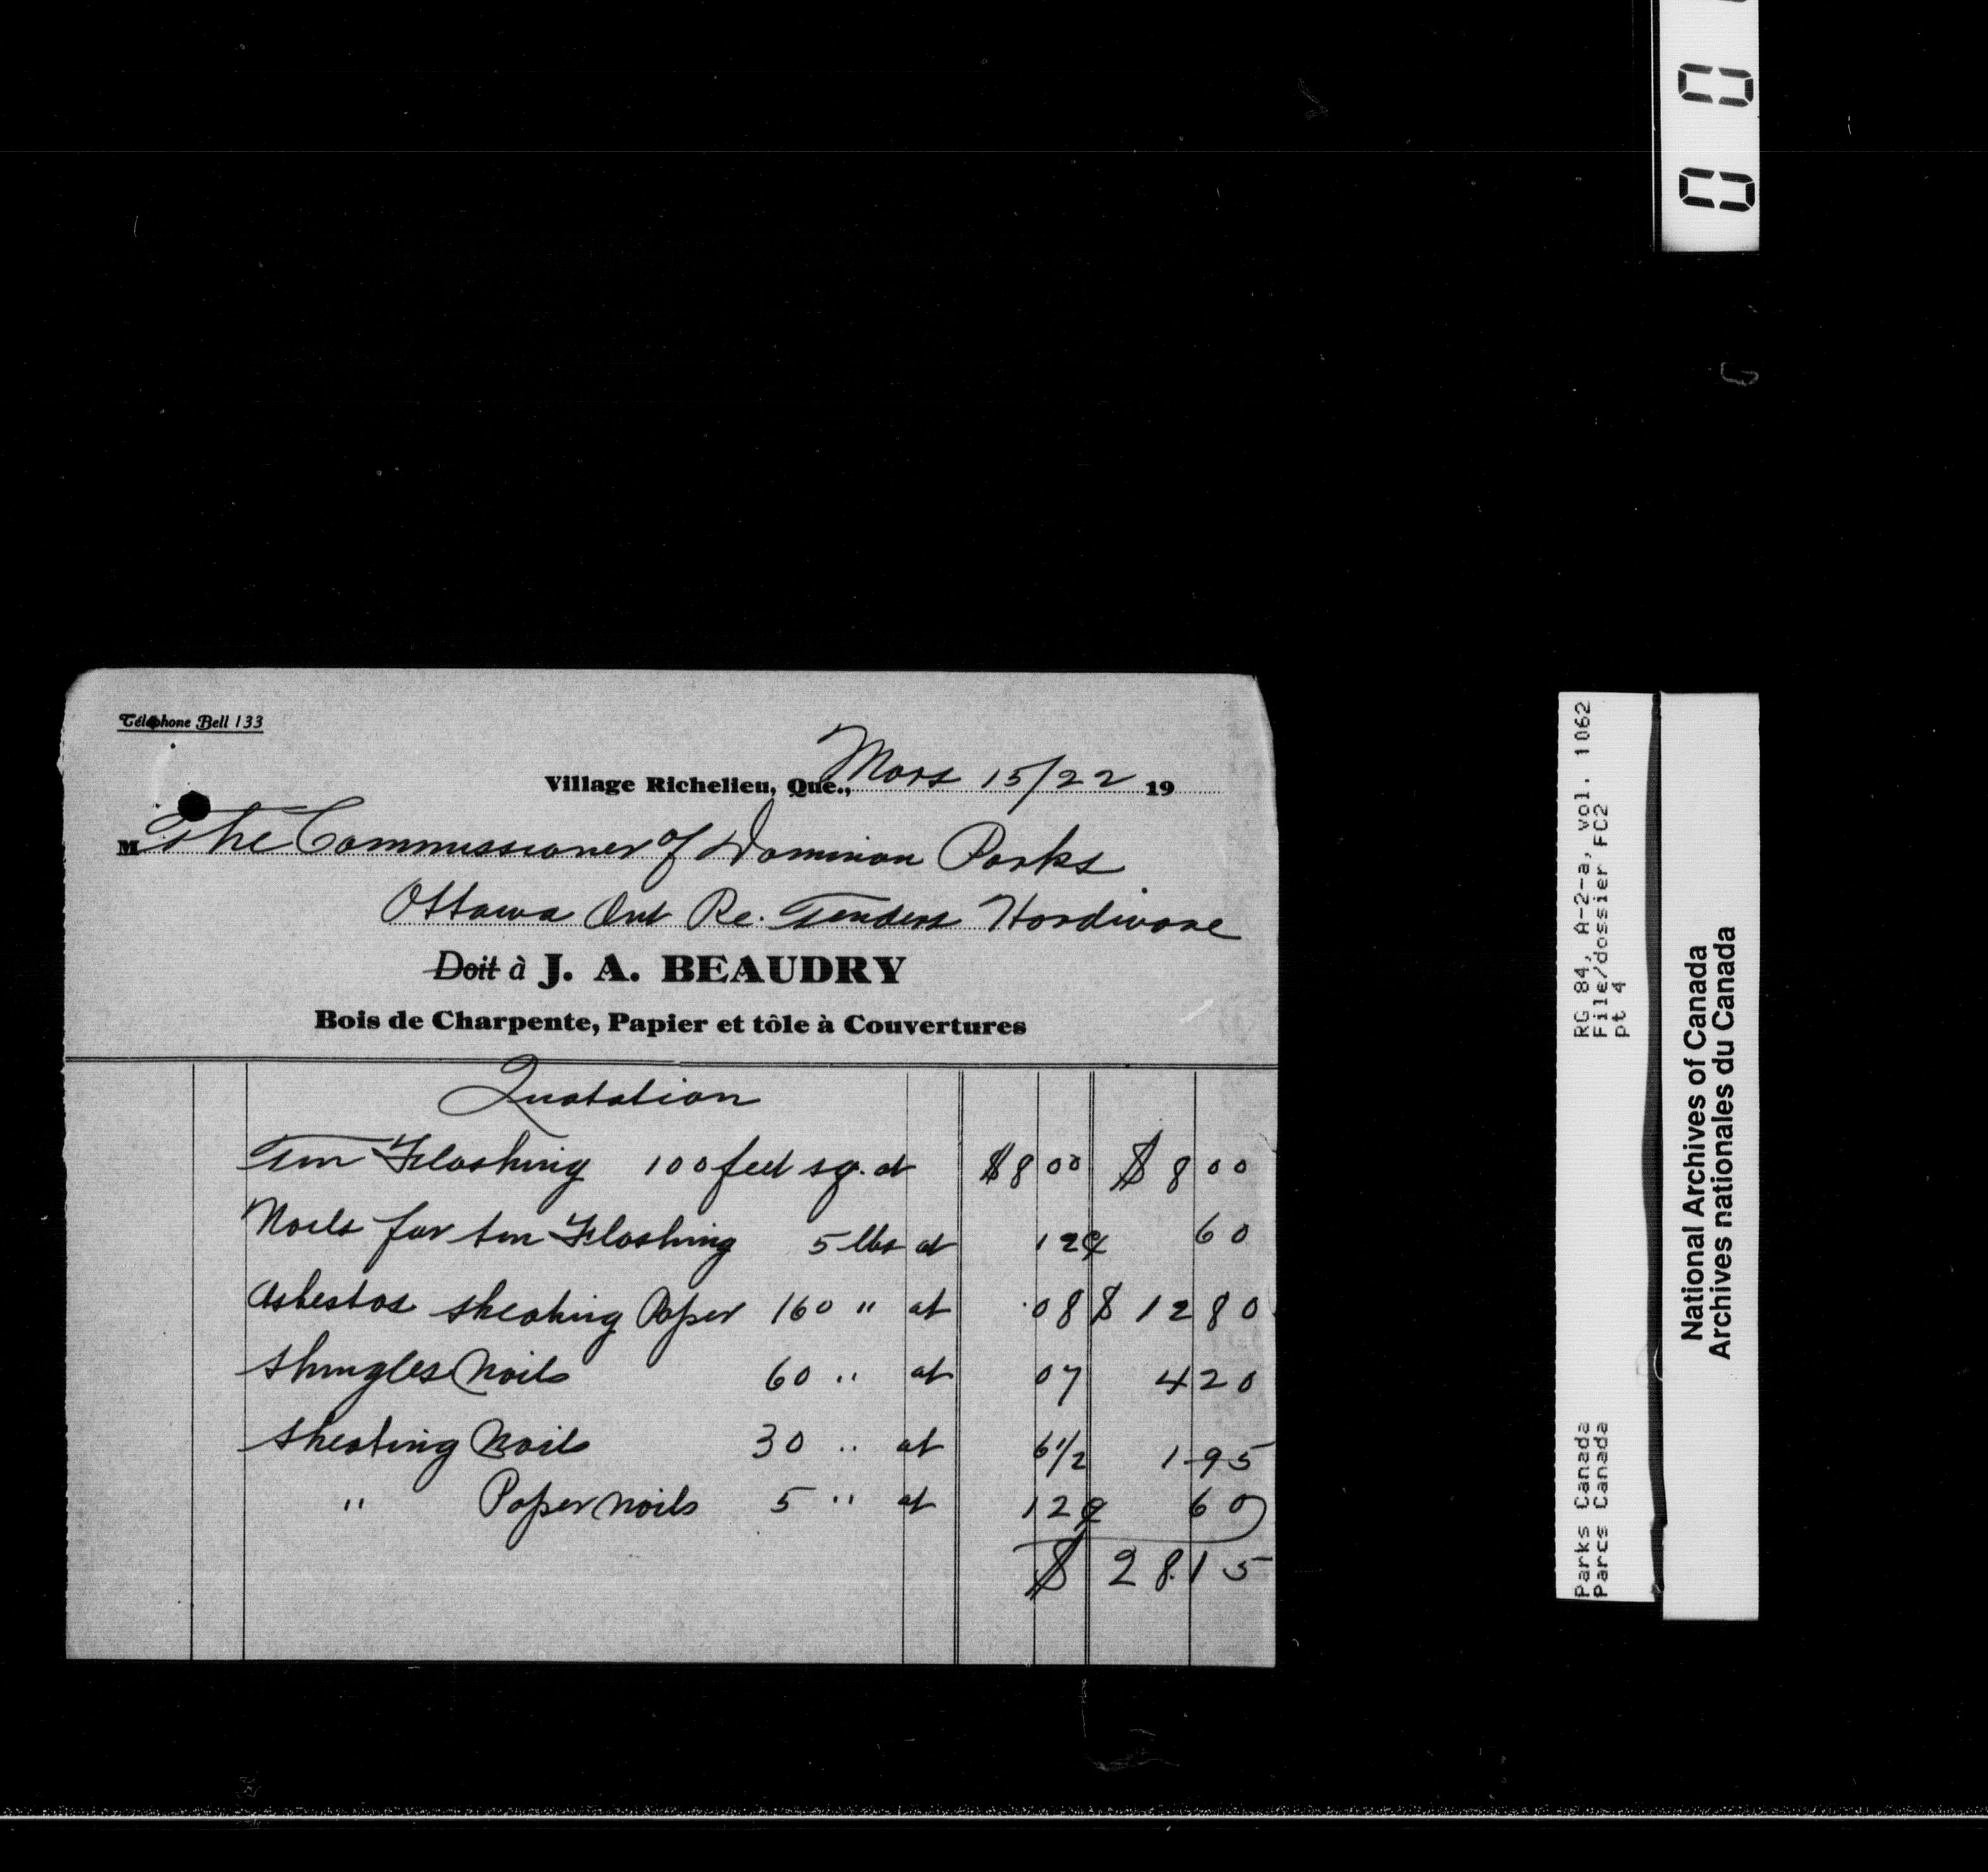 Téléphone Bell 133
Village Richelieu, Que., Mars 15/22 19
M The Commissioner of Dominion Parks
Ottawa Ont Re. Tenders Hardware
Doit à J. A. BEAUDRY
Bois de Charpente, Papier et tôle à Couvertures
Quotation
Tin Flashing 100 feet sq. at $8 00 $8 00
Nails for tin Flashing 5 lbs at 12¢ 60
Asbestos sheating Paper 160 " at .08 $ 12 80
Shingles Nails 60 " at 07 4 20
Sheating Nails 30 " at 6 1/2 1 95
" Paper nails 5 " at 12¢ 60
$ 28.15
RG 84, A-2-a, vol. 1062
File/dossier FC2
pt 4
Parks Canada
Parcs Canada
National Archives of Canada
Archives nationales du Canada
0 0